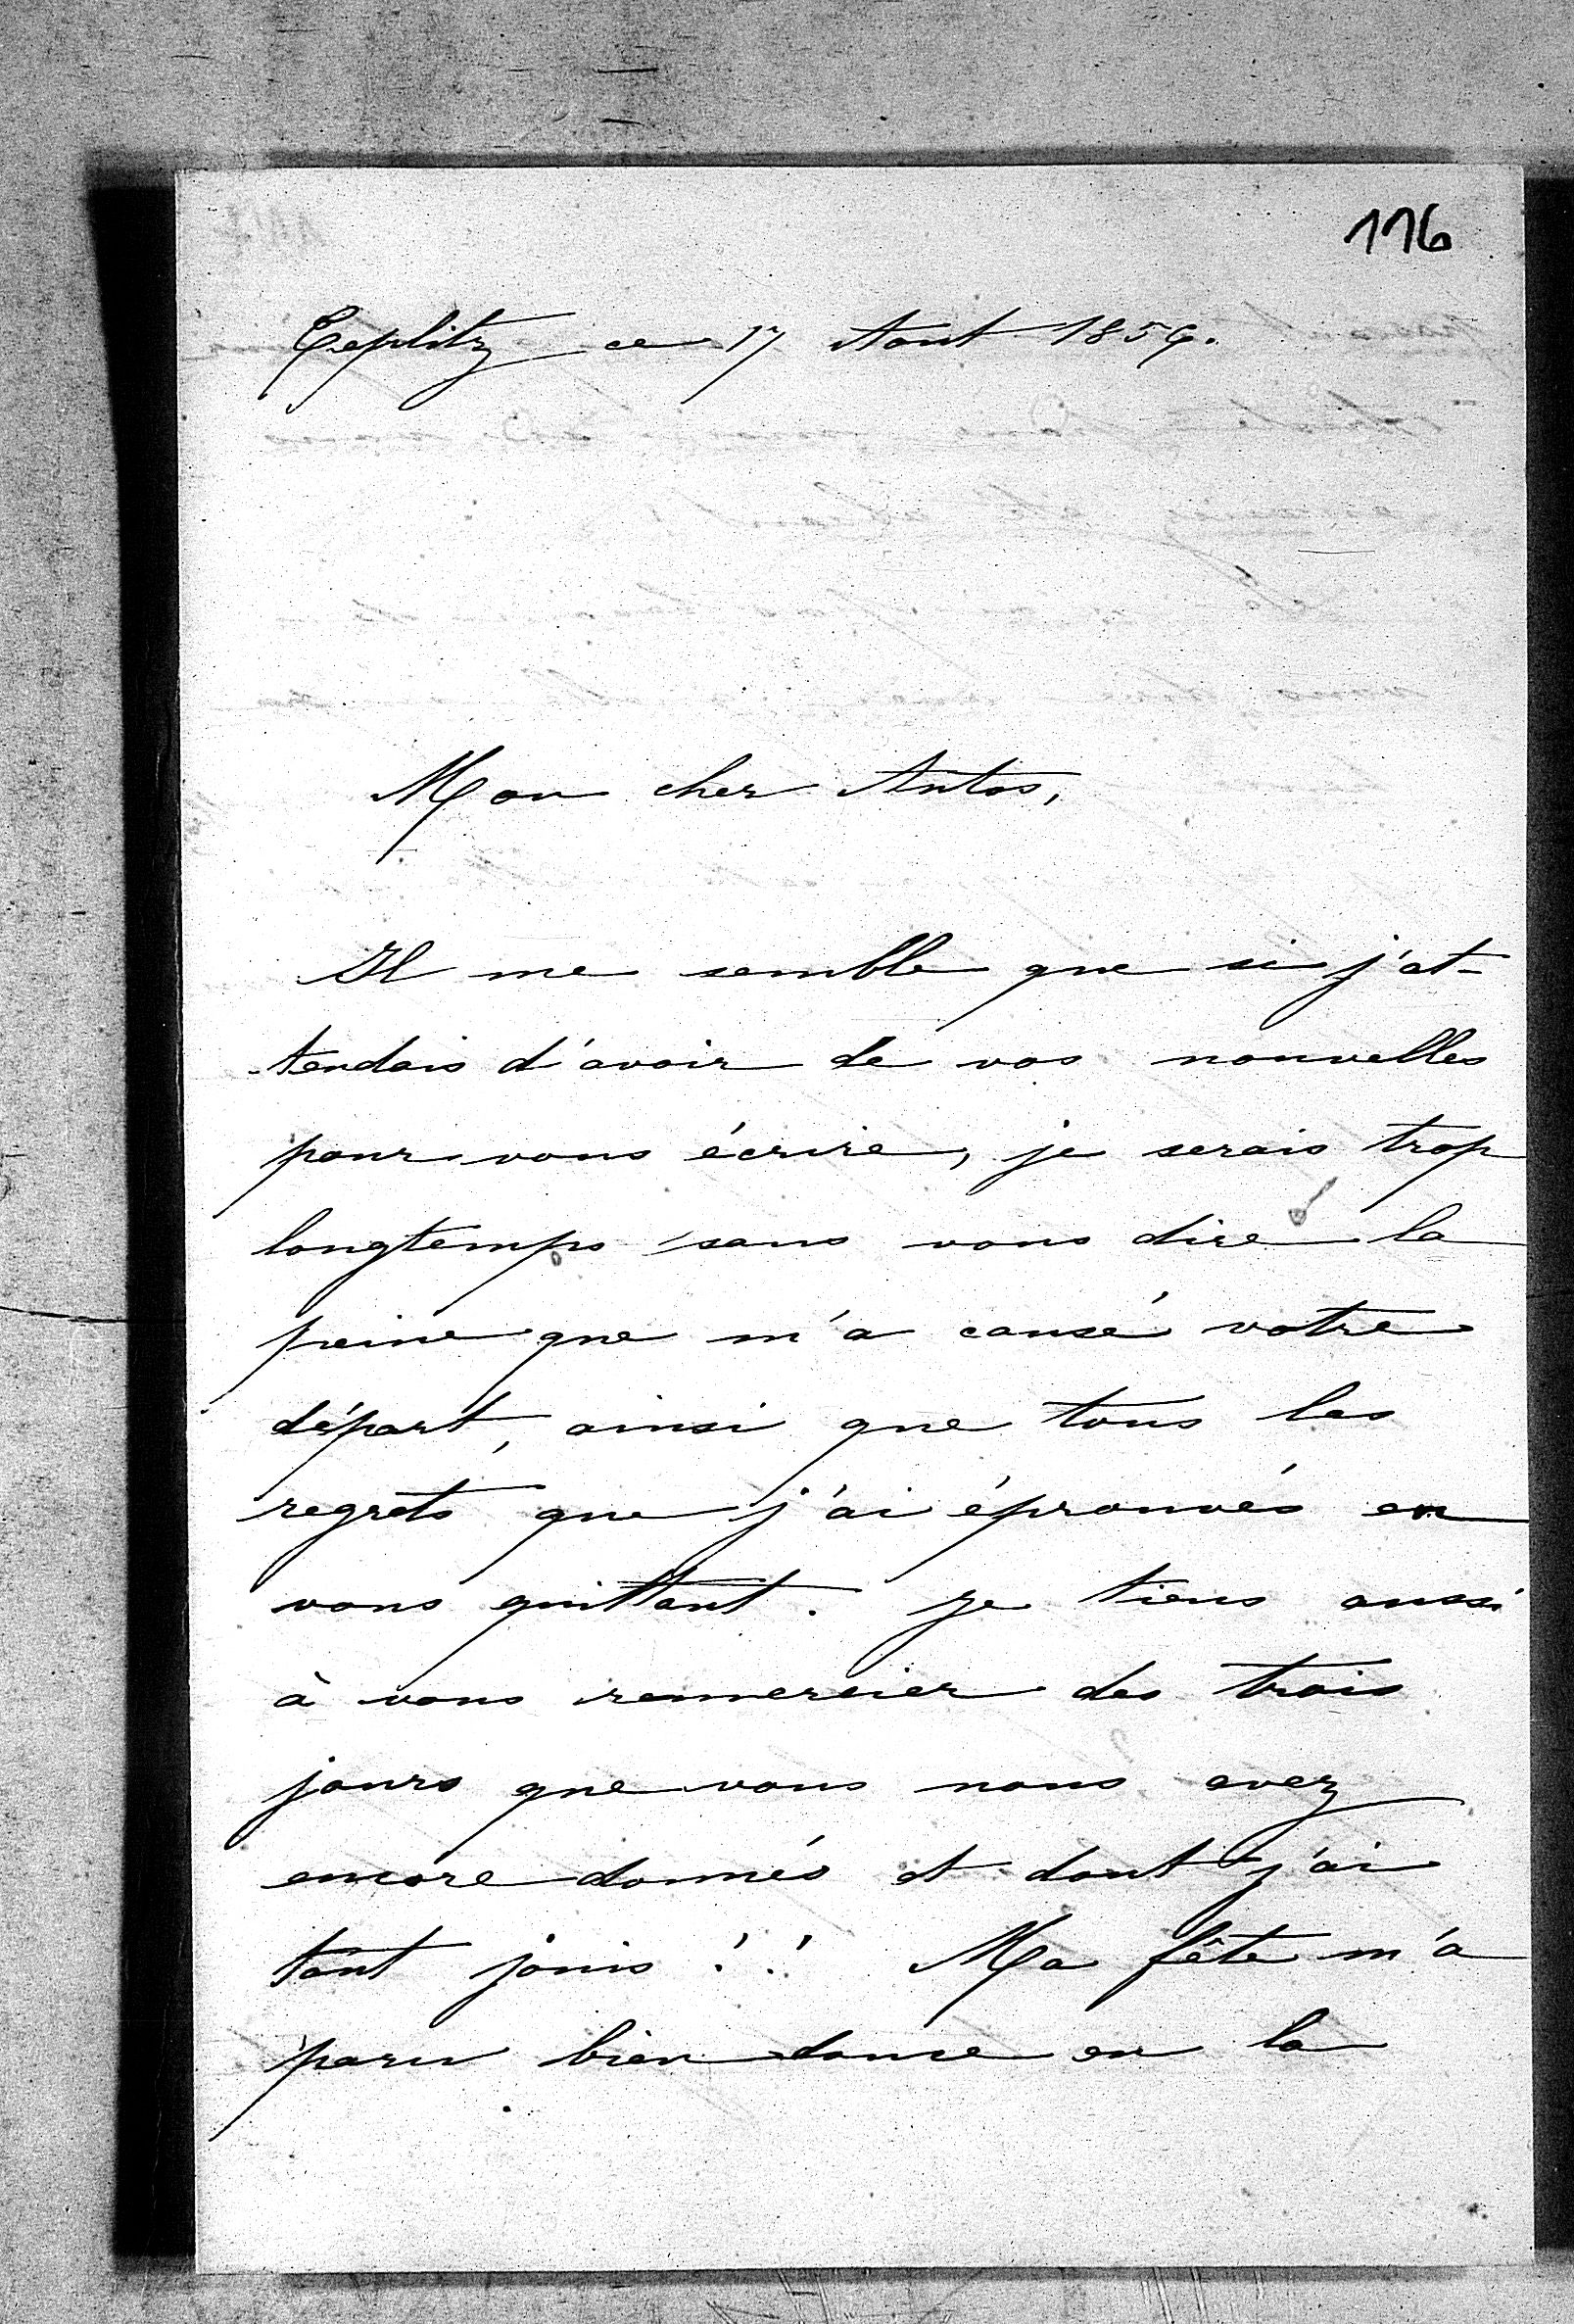 116
Teplitz ce 17 Aout 1856.
Mon cher Antos,
Il me semble que si j'at-
tendais d'avoir de vos nouvelles
pour vous écrire, je serais trop
longtemps sans vous dire la
peine que m'a causé votre
départ, ainsi que tous les
regrets que j'ai éprouvés en
vous quittant. Je tiens aussi
à vous remercier des trois
jours que vous nous avez
encore donnés et dont j'ai
tant jouis!! Ma fête m'a
paru bien douce en la